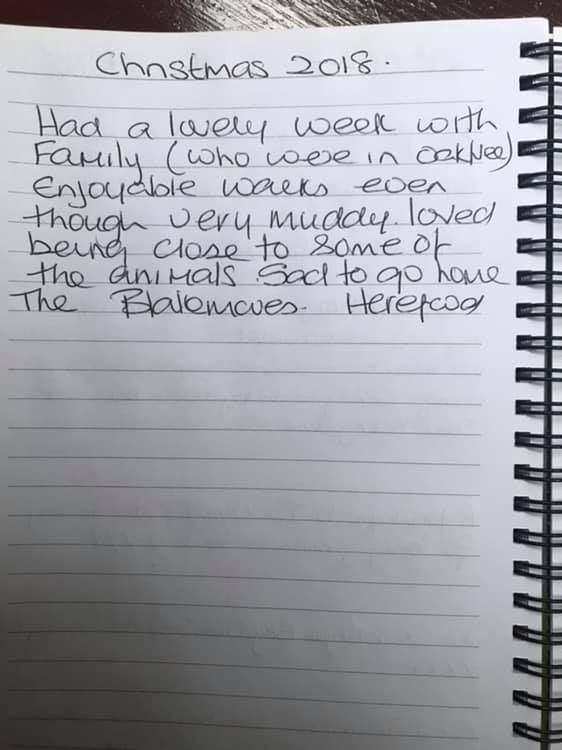 Christmas 2018.
Had a lovely week with
Family (who were in
Enjoyable walks even
though very muddy. loved
being close to some of
the animals. Sad to go home
The Hereford